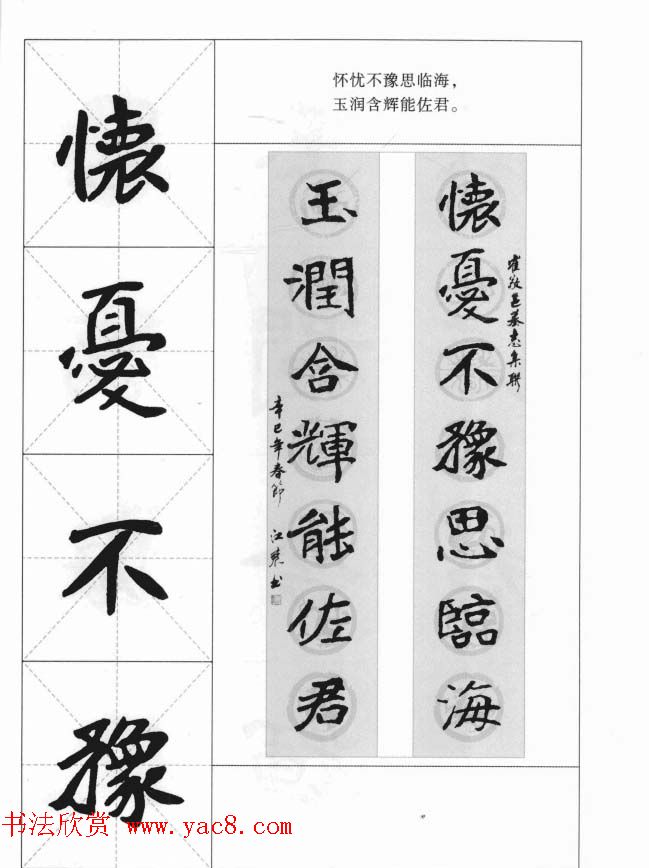 怀忧不豫思临海，
玉润含辉能佐君。
懷憂不豫思臨海
崔敬邕墓志集聯
玉潤含輝能佐君
辛巳年春節 江
書
懷
憂
不
豫
书法欣赏 www.yac8.com